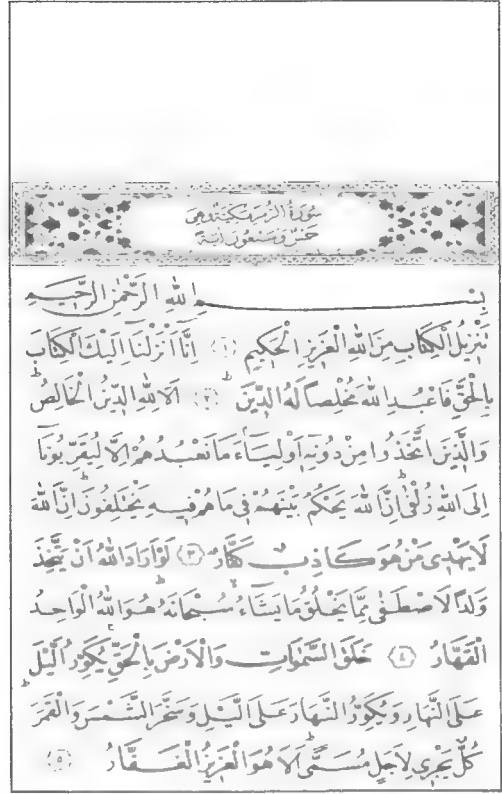 سُورَةُ الزُّمَرِ مَكِّيَّةٌ وَهِيَ
خَمْسٌ وَسَبْعُونَ اٰيَةً
بِسْمِ اللهِ الرَّحْمٰنِ الرَّحِيمِ
تَنْزِيلُ الْكِتَابِ مِنَ اللهِ الْعَزِيزِ الْحَكِيمِ ﴿١﴾ اِنَّا اَنْزَلْنَا اِلَيْكَ الْكِتَابَ
بِالْحَقِّ فَاعْبُدِ اللهَ مُخْلِصاً لَهُ الدِّينَ ﴿٢﴾ اَلَا لِلهِ الدِّينُ الْخَالِصُ
وَالَّذِينَ اتَّخَذُوا مِنْ دُونِهٖ اَوْلِيَاءَ مَا نَعْبُدُهُمْ اِلَّا لِيُقَرِّبُونَا
اِلَى اللهِ زُلْفٰى اِنَّ اللهَ يَحْكُمُ بَيْنَهُمْ فِي مَا هُمْ فِيهِ يَخْتَلِفُونَ اِنَّ اللهَ
لَا يَهْدِي مَنْ هُوَ كَاذِبٌ كَفَّارٌ ﴿٣﴾ لَوْ اَرَادَ اللهُ اَنْ يَتَّخِذَ
وَلَداً لَاصْطَفٰى مِمَّا يَخْلُقُ مَا يَشَاءُ سُبْحَانَهُ هُوَ اللهُ الْوَاحِدُ
الْقَهَّارُ ﴿٤﴾ خَلَقَ السَّمٰوَاتِ وَالْاَرْضَ بِالْحَقِّ يُكَوِّرُ الَّيْلَ
عَلَى النَّهَارِ وَيُكَوِّرُ النَّهَارَ عَلَى الَّيْلِ وَسَخَّرَ الشَّمْسَ وَالْقَمَرَ
كُلٌّ يَجْرِي لِاَجَلٍ مُسَمًّى اَلَا هُوَ الْعَزِيزُ الْغَفَّارُ ﴿٥﴾